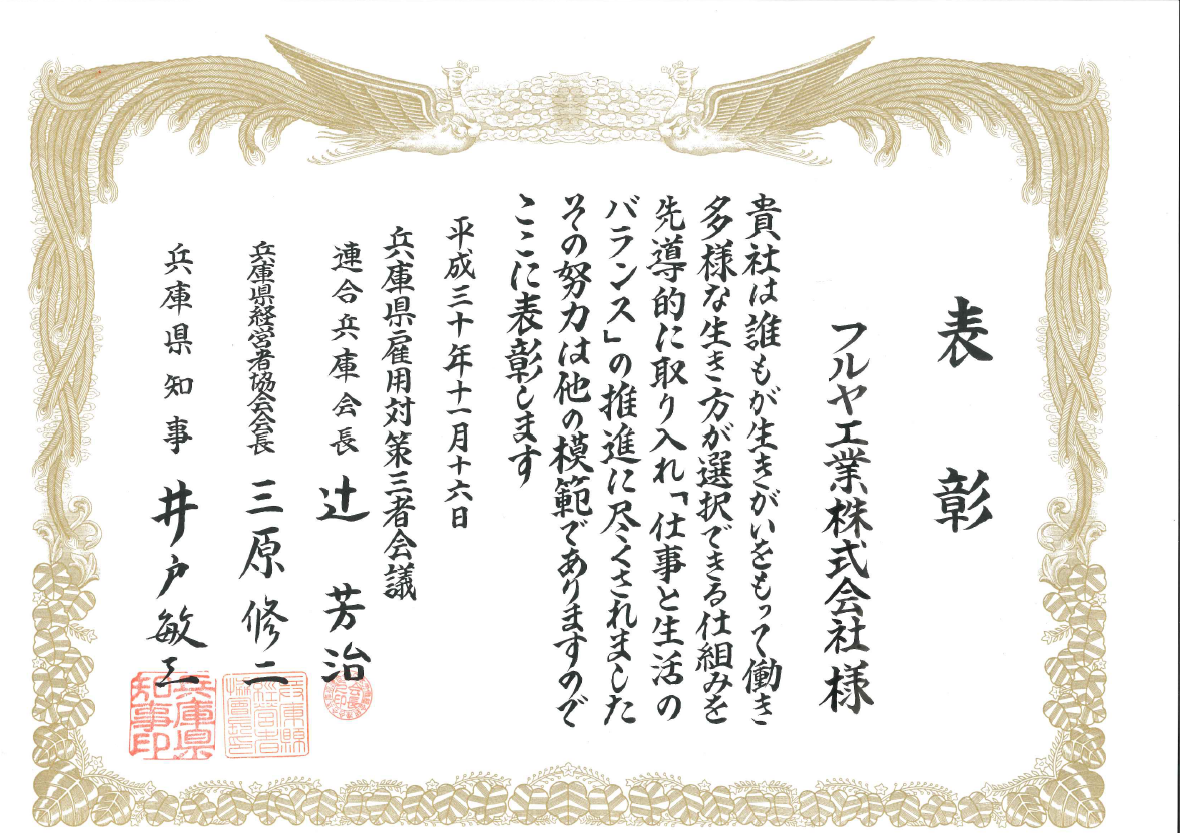 表彰
フルヤ工業株式会社様
貴社は誰もが生きがいをもって働き
多様な生き方が選択できる仕組みを
先導的に取り入れ「仕事と生活の
バランス」の推進に尽くされました
その努力は他の模範でありますので
ここに表彰します
平成三十年十一月十六日
兵庫県雇用対策三者会議
連合兵庫会長 辻 芳治
兵庫県経営者協会会長 三原修二
兵庫県知事 井戸敏三
兵庫県
知事印